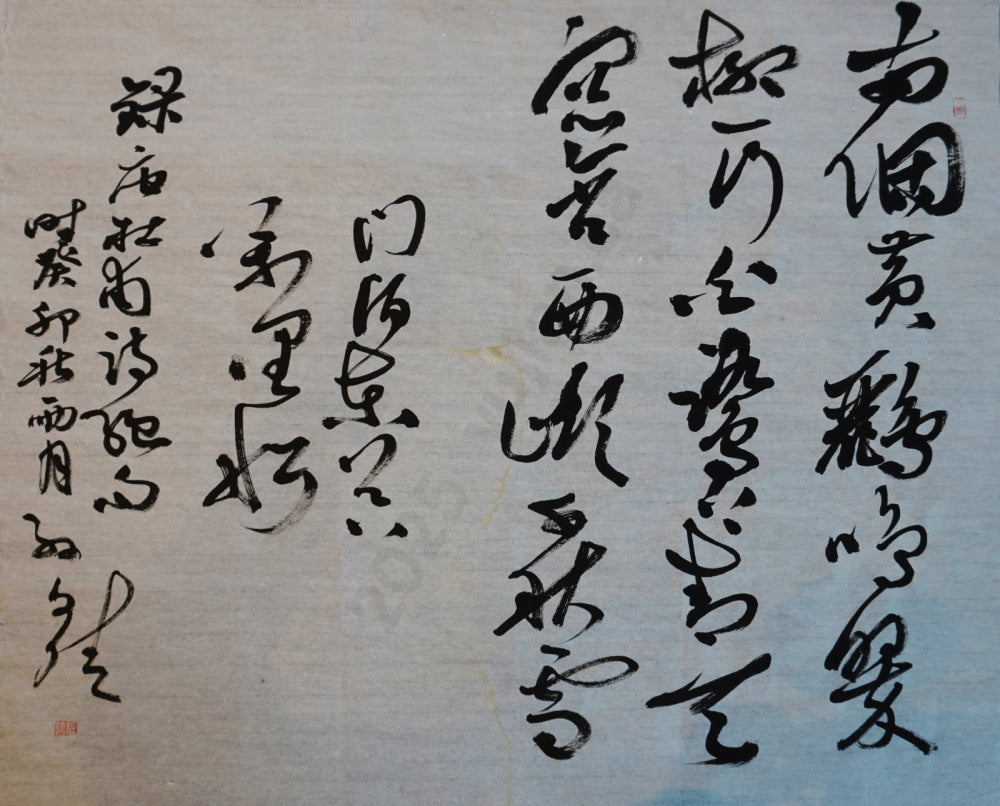 两個黄鸝鳴翠
柳一行白鷺上青天
窗含西嶺千秋雪
门泊東吴
萬里船
録唐杜甫詩絶句
時癸卯秋月